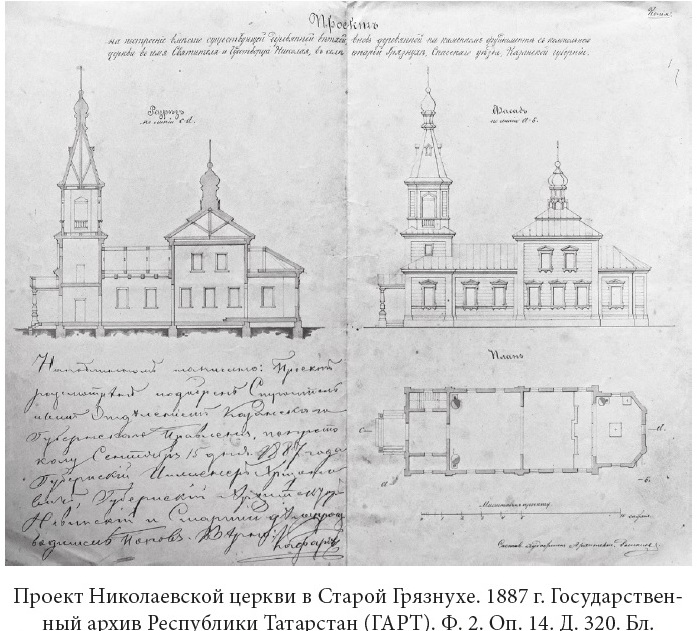 Копия.
Проектъ
на постройку вместо существующей деревянной ветхой, вновь деревянной на каменномъ фундаменте съ колокольнею
церкви во имя Святителя и Чудотворца Николая, въ селе Старой Грязнухе, Спасскаго уезда, Казанской губернiи.
Разрезъ
по линiи c d.
Фасадъ
по линiи а б.
На подлинномъ написано: Проектъ
разсмотренъ
Строитель
нымъ Отделенiемъ Казанскаго
Губернскаго Правленiя, по прото
колу Сентября 15 дня 1887 года
Губернскiй Инженеръ
Губернскiй
и Старшiй
Поповъ. Верно:
Планъ
Масштабъ
10 сажен.
Составилъ
Проект Николаевской церкви в Старой Грязнухе. 1887 г. Государствен-
ный архив Республики Татарстан (ГАРТ). Ф. 2. Оп. 14. Д. 320. Бл.